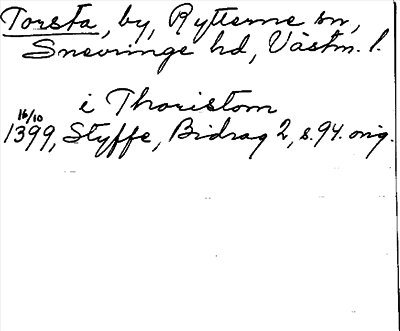 Torsta, by, Rytterne sn,
Snevringe hd, Västm. l.
i Thoristom
16/10
1399, Styffe, Bidrag 2, s. 94. orig.